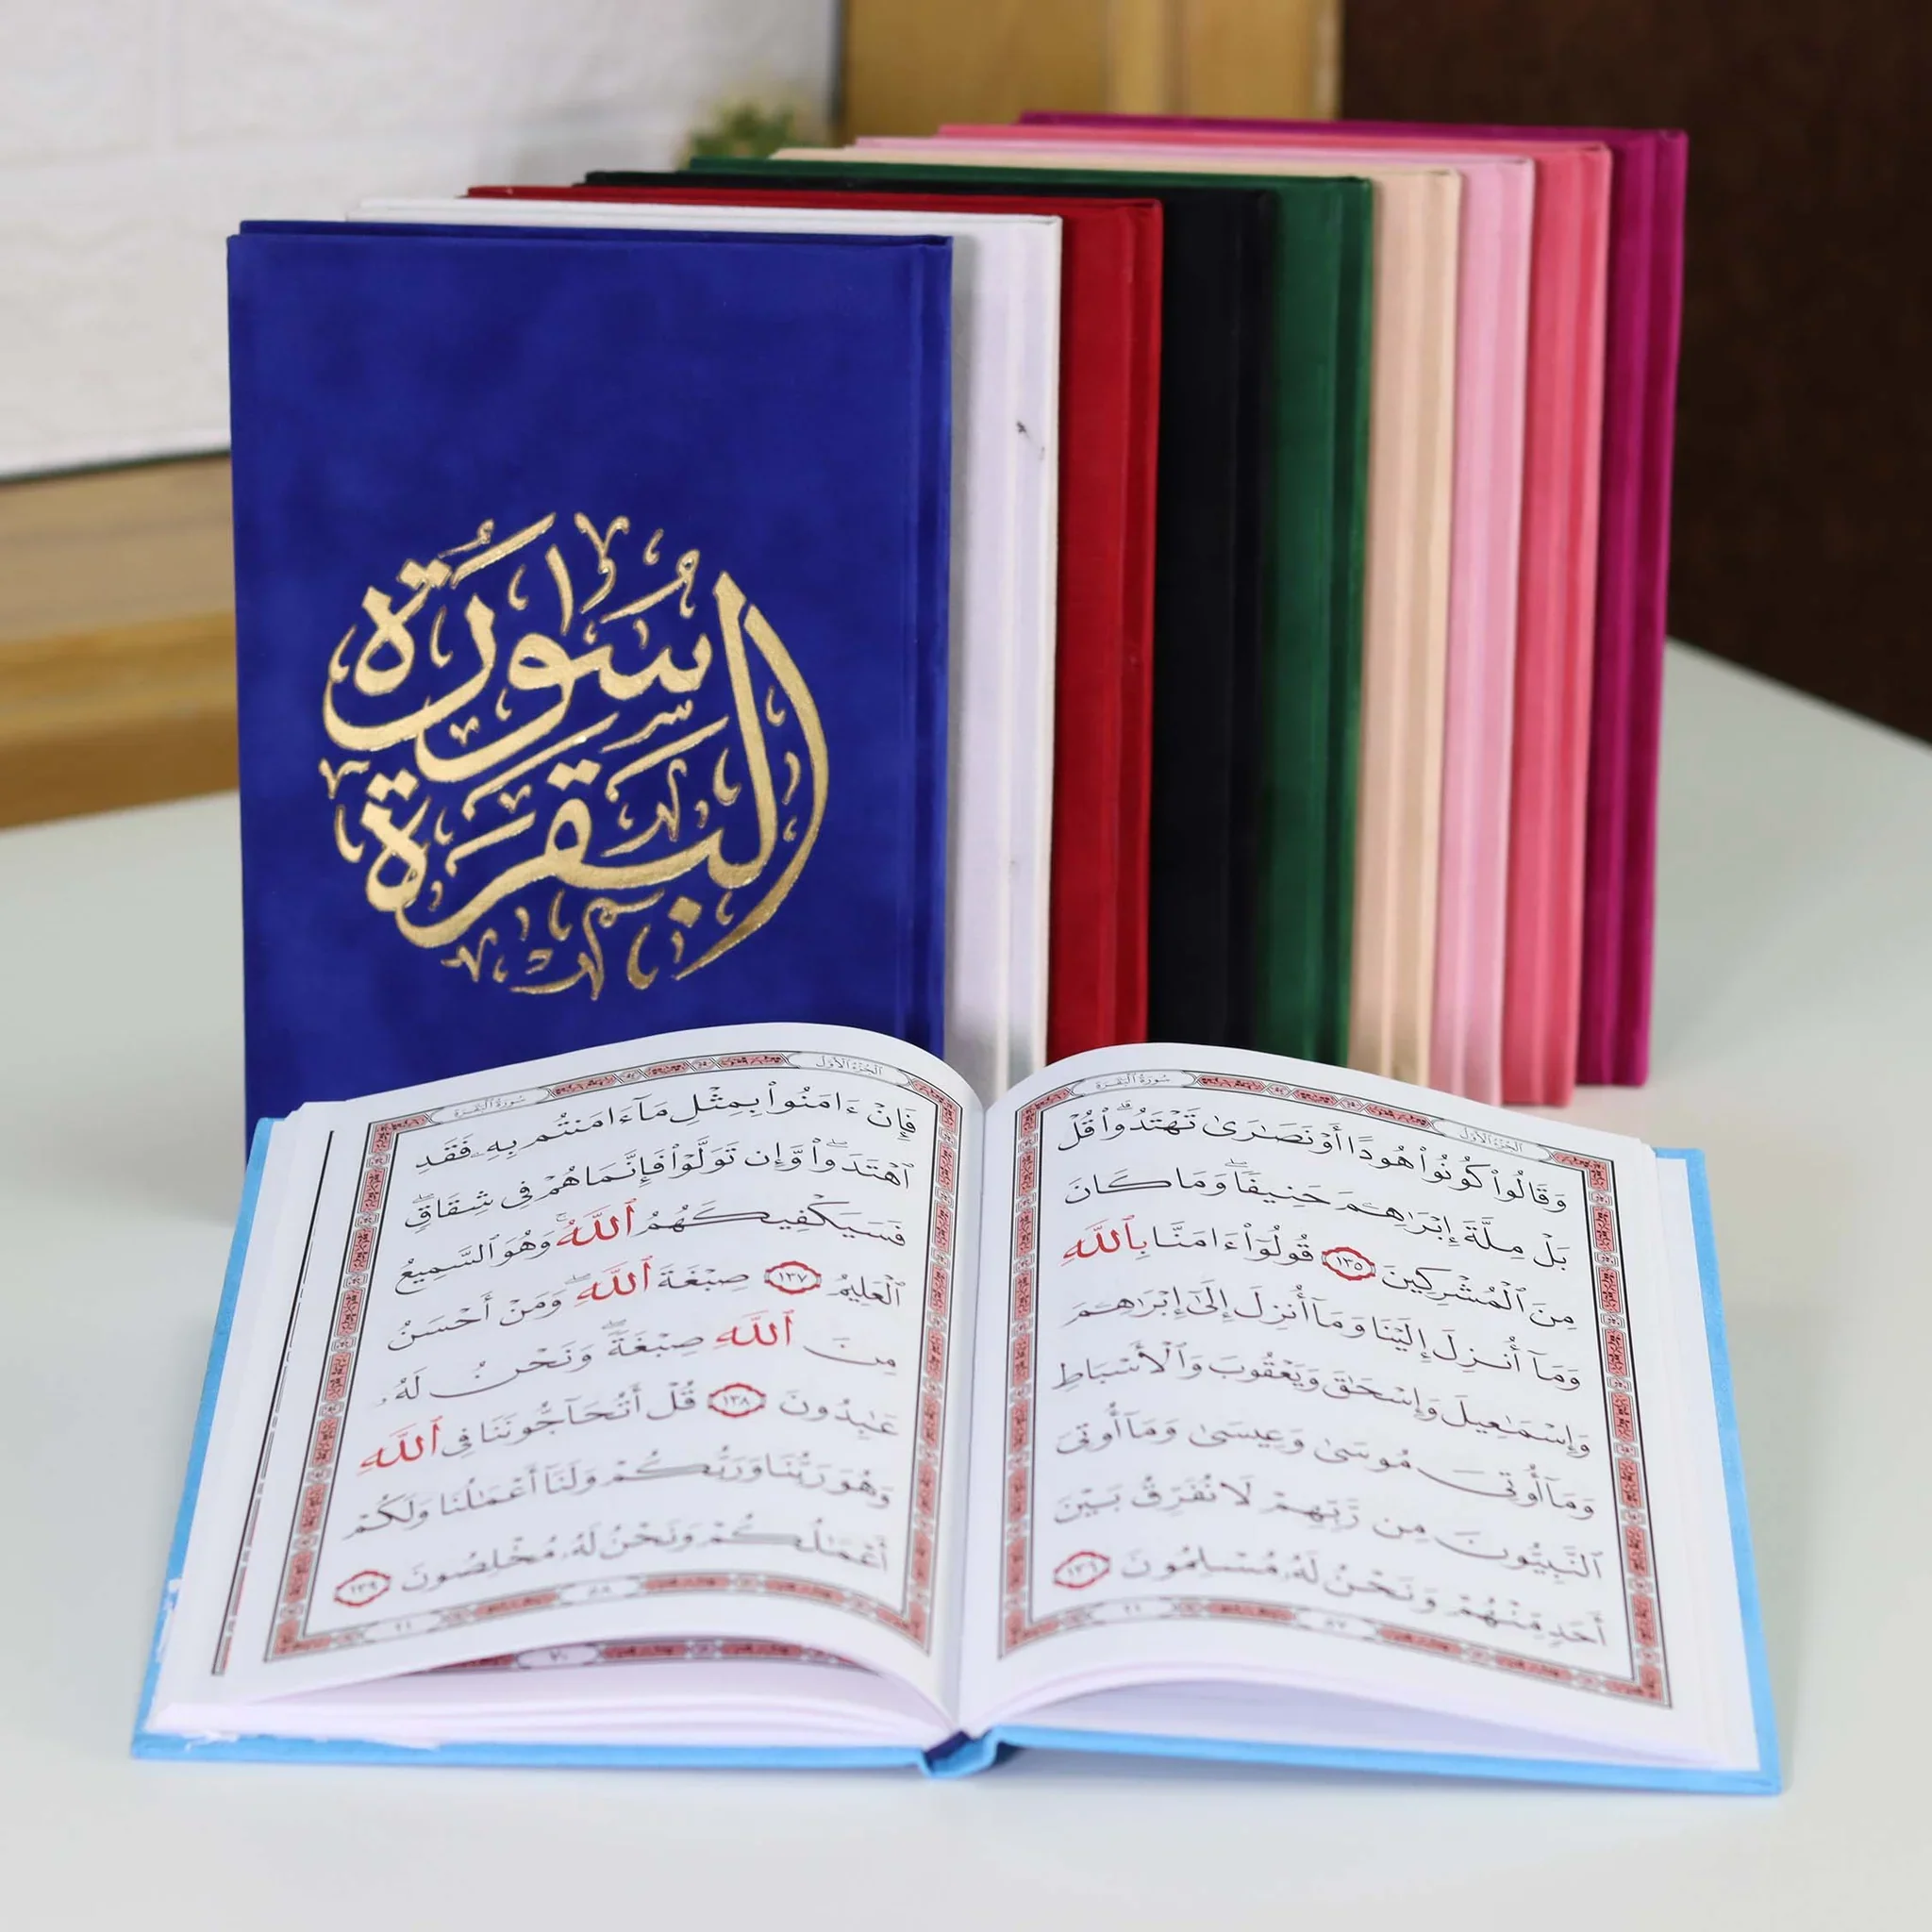 سُورَةُ
البَقَرَةِ
سُورَةُ البَقَرَة
الجُزْءُ الأَوَّل
وَقَالُواْ كُونُواْ هُودًا أَوْ نَصَٰرَىٰ تَهْتَدُواْ ۗ قُلْ
بَلْ مِلَّةَ إِبْرَٰهِـۧمَ حَنِيفًا ۖ وَمَا كَانَ
مِنَ ٱلْمُشْرِكِينَ ١٣٥ قُولُوٓاْ ءَامَنَّا بِٱللَّهِ
وَمَآ أُنزِلَ إِلَيْنَا وَمَآ أُنزِلَ إِلَىٰٓ إِبْرَٰهِـۧمَ
وَإِسْمَٰعِيلَ وَإِسْحَٰقَ وَيَعْقُوبَ وَٱلْأَسْبَاطِ
وَمَآ أُوتِىَ مُوسَىٰ وَعِيسَىٰ وَمَآ أُوتِىَ
ٱلنَّبِيُّونَ مِن رَّبِّهِمْ لَا نُفَرِّقُ بَيْنَ
أَحَدٍ مِّنْهُمْ وَنَحْنُ لَهُۥ مُسْلِمُونَ ١٣٦
سُورَةُ البَقَرَة
الجُزْءُ الأَوَّل
فَإِنْ ءَامَنُواْ بِمِثْلِ مَآ ءَامَنتُم بِهِۦ فَقَدِ
ٱهْتَدَواْ ۖ وَّإِن تَوَلَّوْاْ فَإِنَّمَا هُمْ فِى شِقَاقٍ ۖ
فَسَيَكْفِيكَهُمُ ٱللَّهُ ۚ وَهُوَ ٱلسَّمِيعُ
ٱلْعَلِيمُ ١٣٧ صِبْغَةَ ٱللَّهِ ۖ وَمَنْ أَحْسَنُ
مِنَ ٱللَّهِ صِبْغَةً ۖ وَنَحْنُ لَهُۥ
عَٰبِدُونَ ١٣٨ قُلْ أَتُحَآجُّونَنَا فِى ٱللَّهِ
وَهُوَ رَبُّنَا وَرَبُّكُمْ وَلَنَآ أَعْمَٰلُنَا وَلَكُمْ
أَعْمَٰلُكُمْ وَنَحْنُ لَهُۥ مُخْلِصُونَ ١٣٩